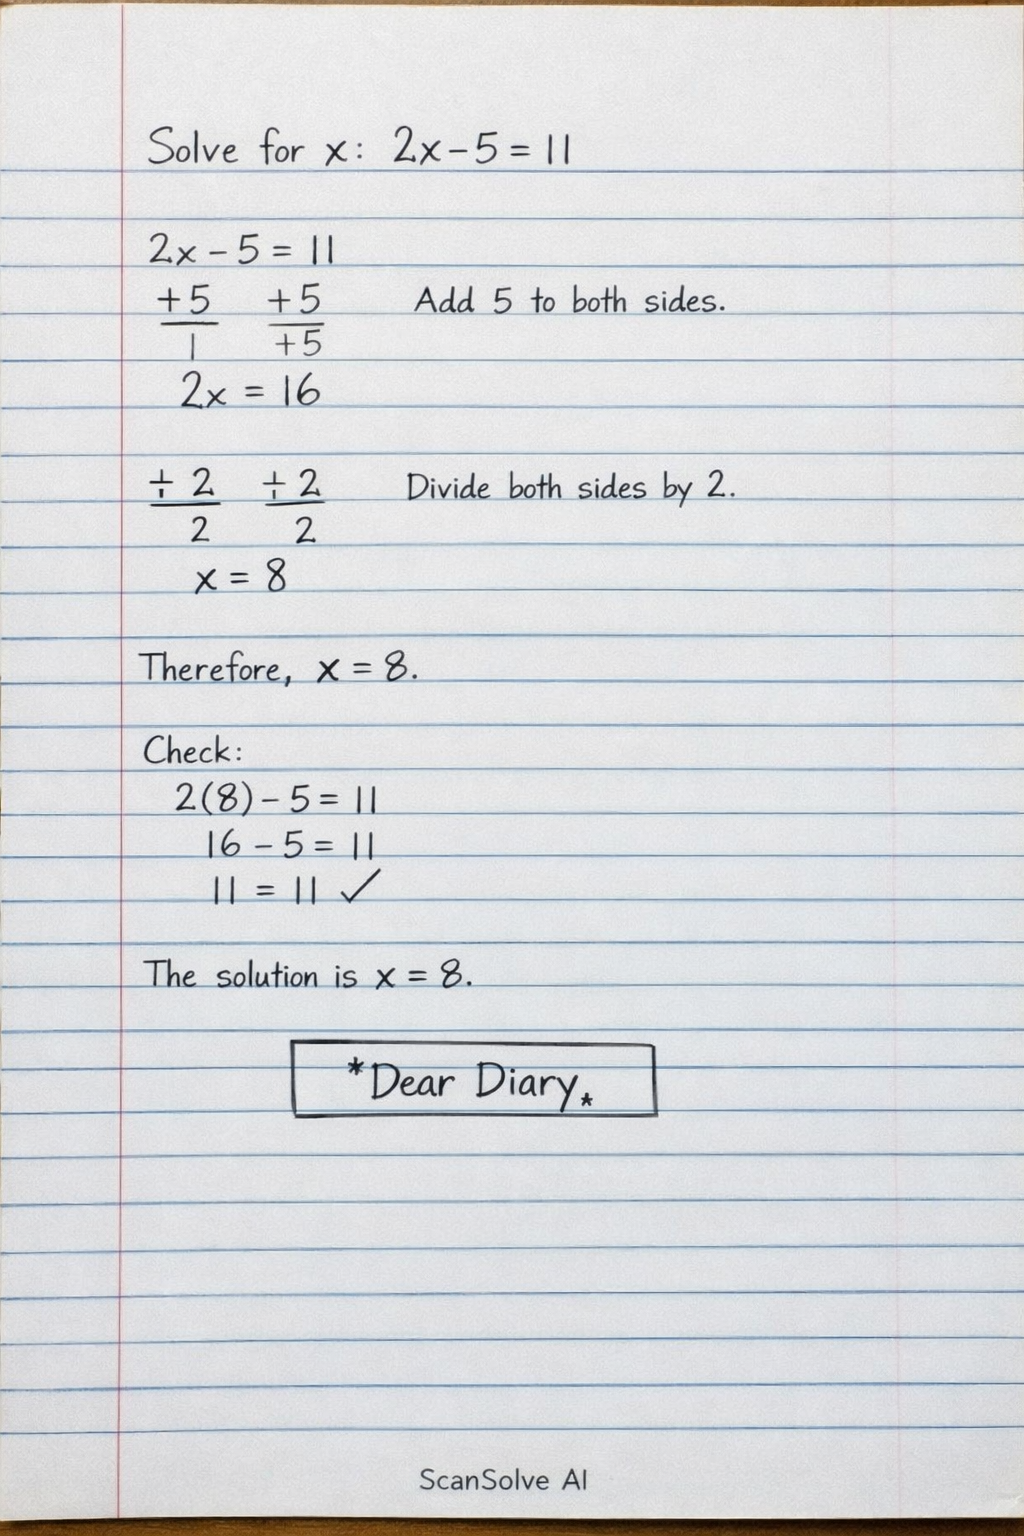 Solve for x: 2x-5 = 11
2x - 5 = 11
+5 +5 Add 5 to both sides.
1 +5
2x = 16
÷ 2 ÷ 2 Divide both sides by 2.
2 2
x = 8
Therefore, x = 8.
Check:
2(8) - 5 = 11
16 - 5 = 11
11 = 11 ✓
The solution is x = 8.
*Dear Diary.*
ScanSolve AI